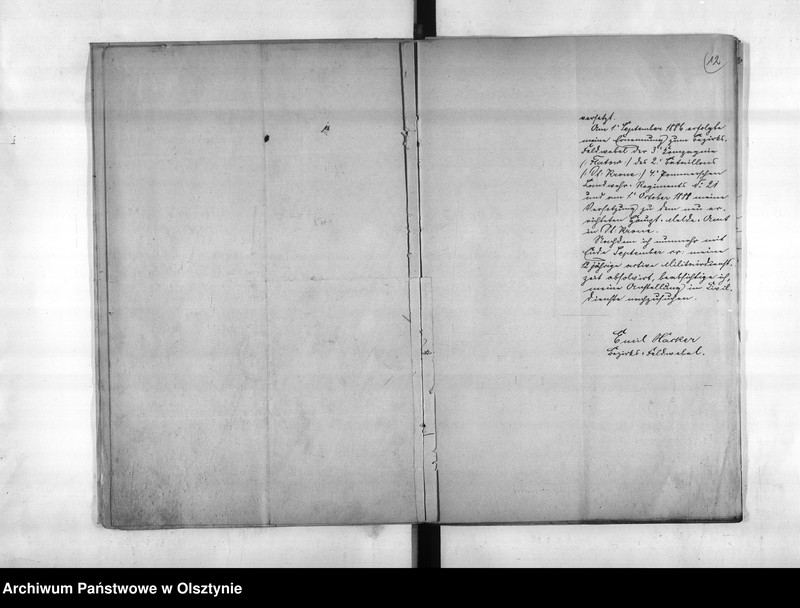 12
versetzt.
Am 1t September 1886 erfolgte
meine Ernennung zum Bezirks-
Feldwebel der 3t Compagnie
(: Flatow :) des 2t Bataillons
(: Dt Krone :) 4t Pommerschen
Landwehr-Regiments No 21
und am 1t October 1888 meine
Versetzung zu dem neu er-
richteten Haupt-Melde-Amt
in Dt Krone.
Nachdem ich nunmehr mit
Ende September cr. meine
12 jährige active Militairdienst-
zeit absolvirt, beabsichtige ich,
meine Anstellung im Civil-
dienste nachzusuchen.
Emil Harker
Bezirks-Feldwebel.
Archiwum Państwowe w Olsztynie